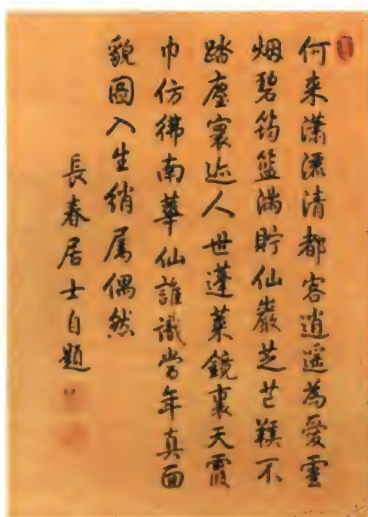 何來潇洒清都客逍遥為愛雲
烟碧筠籃满貯仙巖芝芒鞵不
踏塵寰迹人世蓬萊鏡裏天霞
巾仿彿南華仙誰識當年真面
貌圖入生綃属偶然
長春居士自題